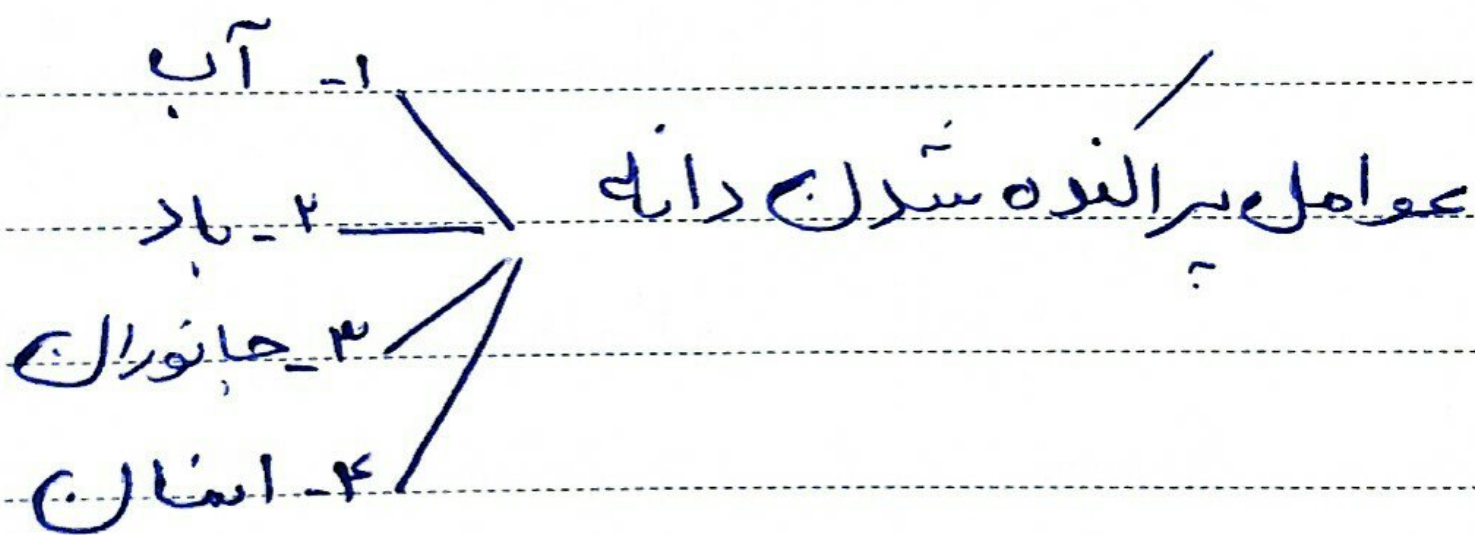 عوامل پراکنده شدن دانه
۱- آب
۲- باد
۳- جانوران
۴- انسان